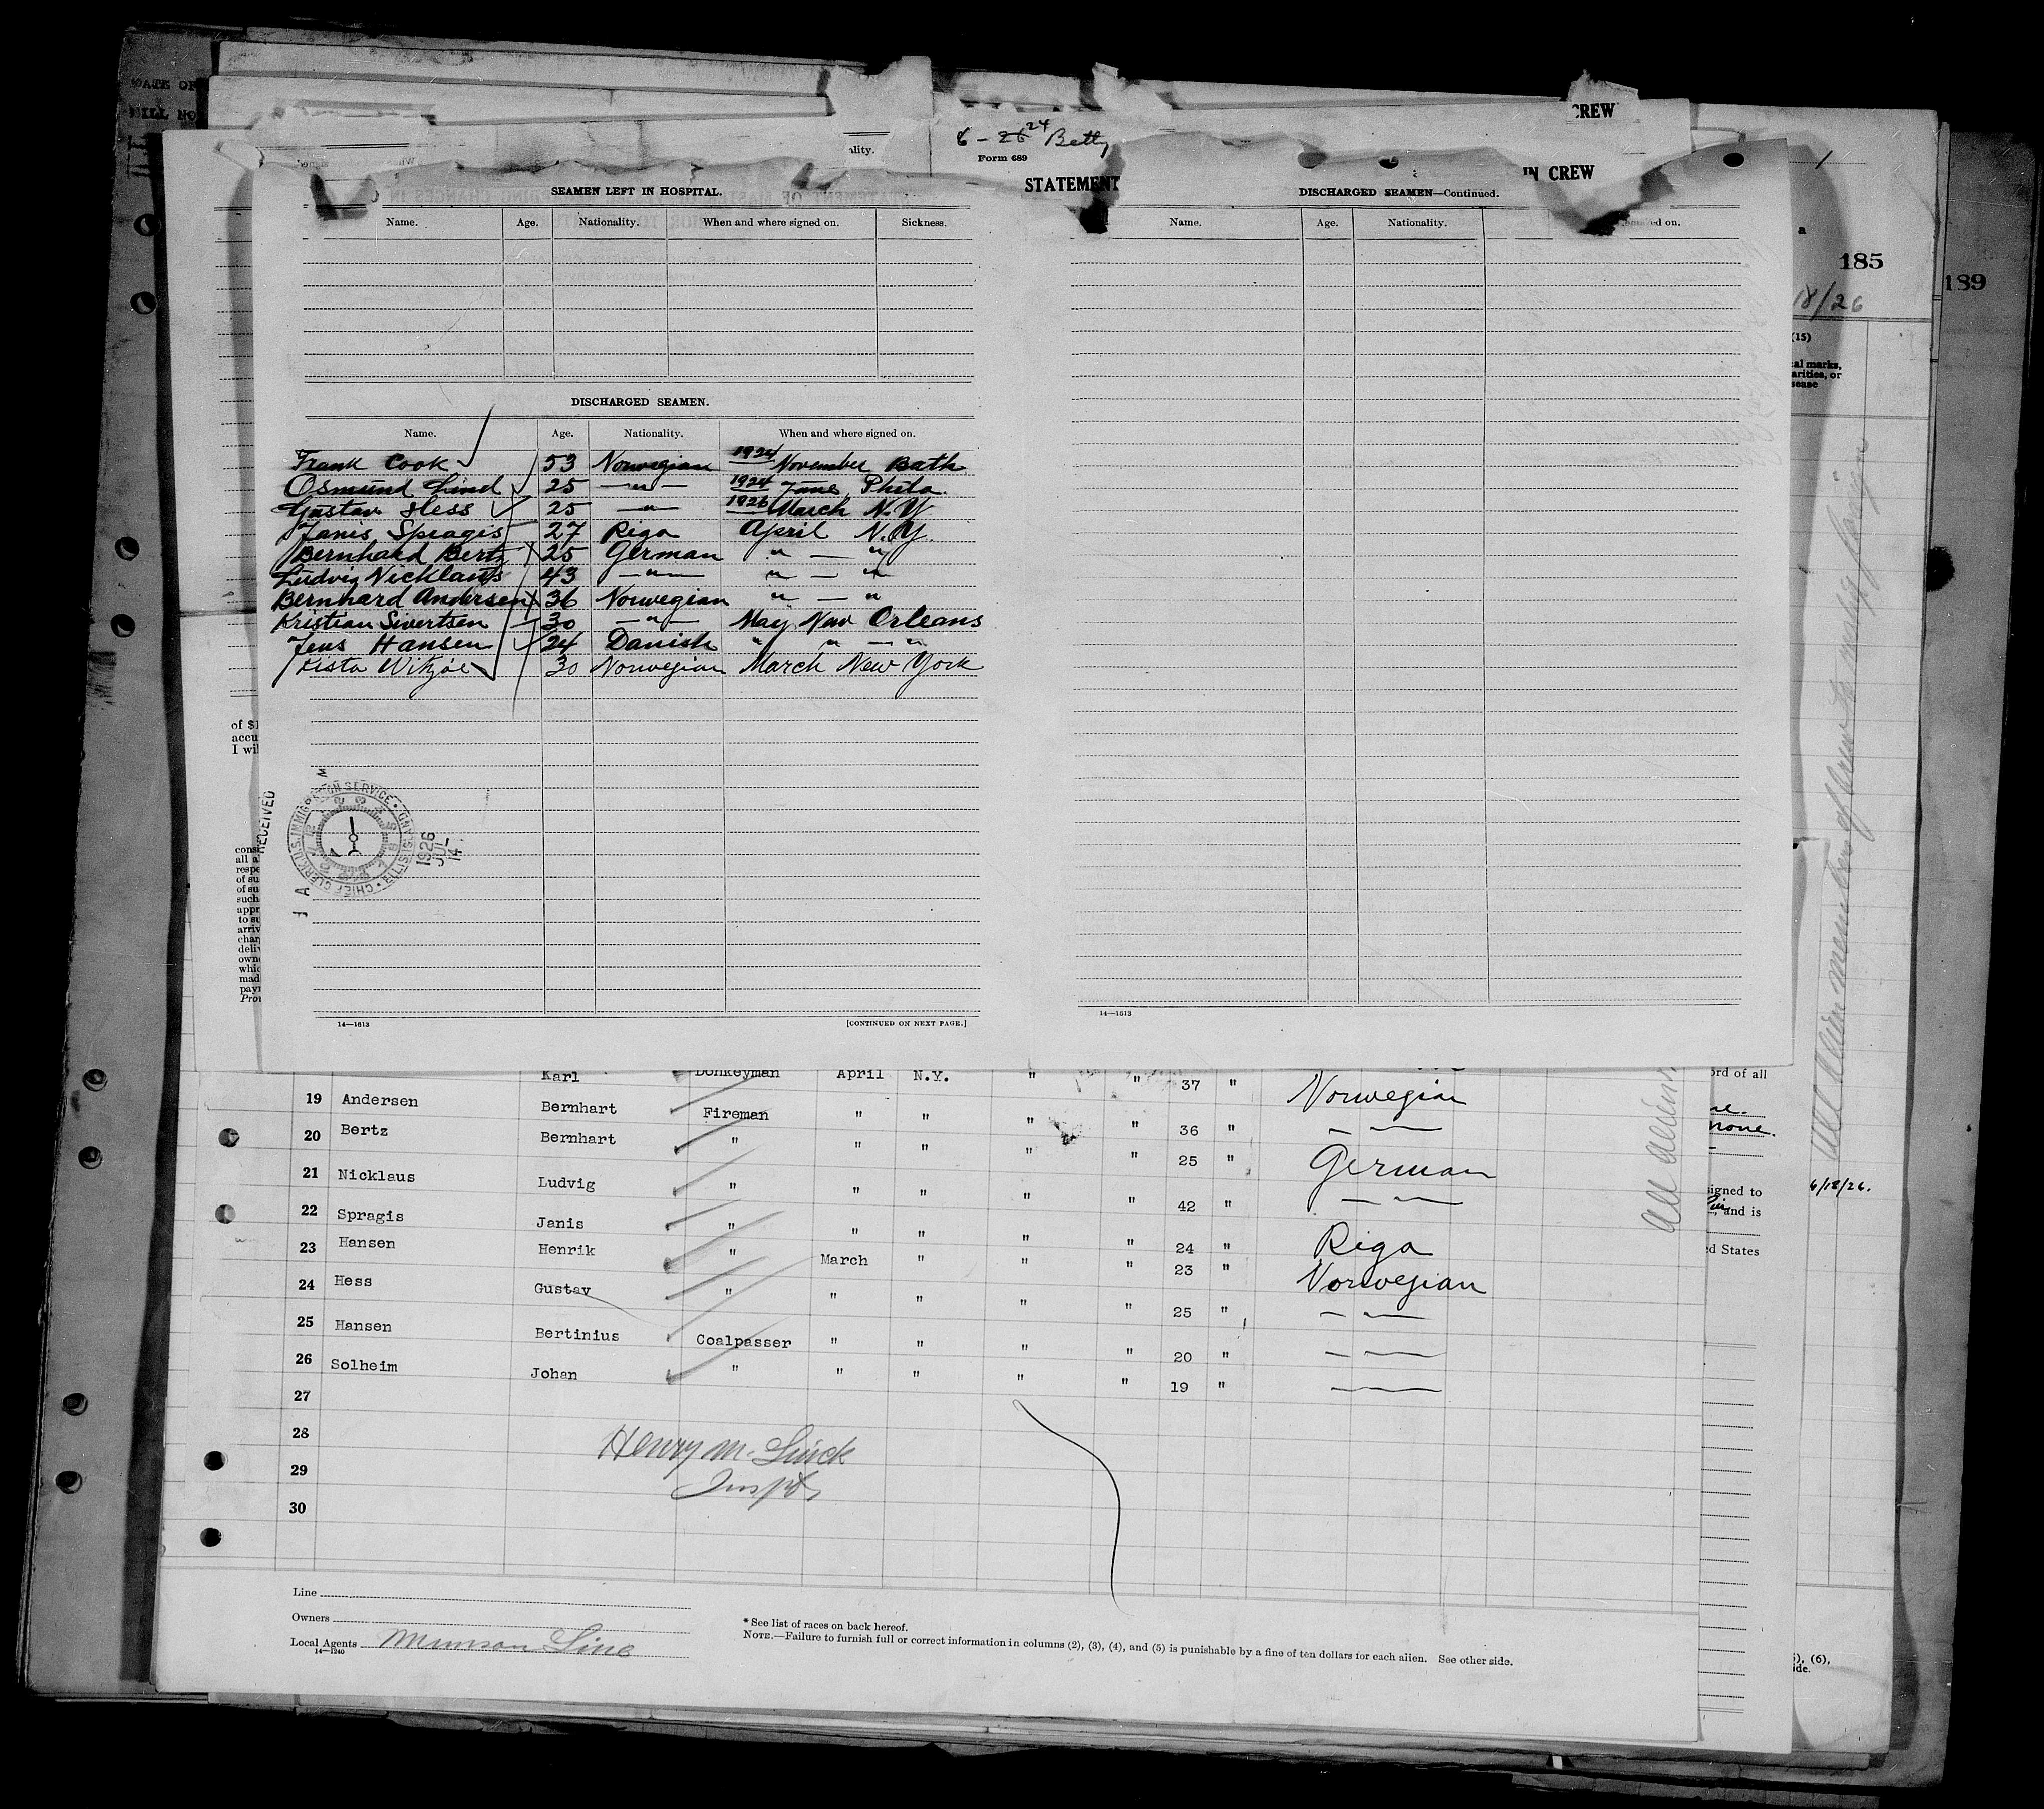 DATE OF
BILL NO
CREW
6 - 26 24 Betty
ality.
Form 689
STATEMENT
IN CREW
SEAMEN LEFT IN HOSPITAL.
Name. Age. Nationality. When and where signed on. Sickness.
DISCHARGED SEAMEN—Continued.
Name. Age. Nationality. on.
1
a
185
189
18/26
(15)
cal marks,
arities, or
sease
DISCHARGED SEAMEN.
Name. Age. Nationality. When and where signed on.
Frank Cook 53 Norwegian 1924 November Bath
Osmund Lind 25 — " — 1924 June Phila.
Gustav Hess 25 — " 1926 March N.Y
Janis Spragis 27 Riga April N.Y.
Bernhard Bertz 25 German " — "
Ludvig Nicklaus 43 — " — " — "
Bernhard Andersen 36 Norwegian " — "
Kristian Sivertsen 30 — " — May New Orleans
Jens Hansen 24 Danish " " — "
30 Norwegian March New York
of $1
accu
I wil
RECEIVED
CHIEF CLERK U.S. IMMIGRATION SERVICE • ELLIS ISLAND •
1926
JUL
14
cons
all a
respe
of su
of su
such
appr
to su
arriv
char
deliv
owne
whic
mad
payn
Prov
14—1613 [CONTINUED ON NEXT PAGE.]
14—1613
Karl Donkeyman April N.Y. " " 37 " Norwegian
19 Andersen Bernhart Fireman " " " " 36 " — —
20 Bertz Bernhart " " " " " 25 " German
21 Nicklaus Ludvig " " " " " 42 " — —
22 Spragis Janis " " " " " 24 " Riga
23 Hansen Henrik " March " " " 23 " Norwegian
24 Hess Gustav " " " " " 25 " — —
25 Hansen Bertinius Coalpasser " " " " 20 " — —
26 Solheim Johan " " " " " 19 " — —
27
28
29
30
Henry M.
Inspt.
Line
Owners
Local Agents Munson Line
14—1240
*See list of races on back hereof.
NOTE.—Failure to furnish full or correct information in columns (2), (3), (4), and (5) is punishable by a fine of ten dollars for each alien. See other side.
All Aliens
ord of all
none.
signed to
, and is
ed States
6/18/26.
All Alien members of crew
foreign
5), (6),
ide.